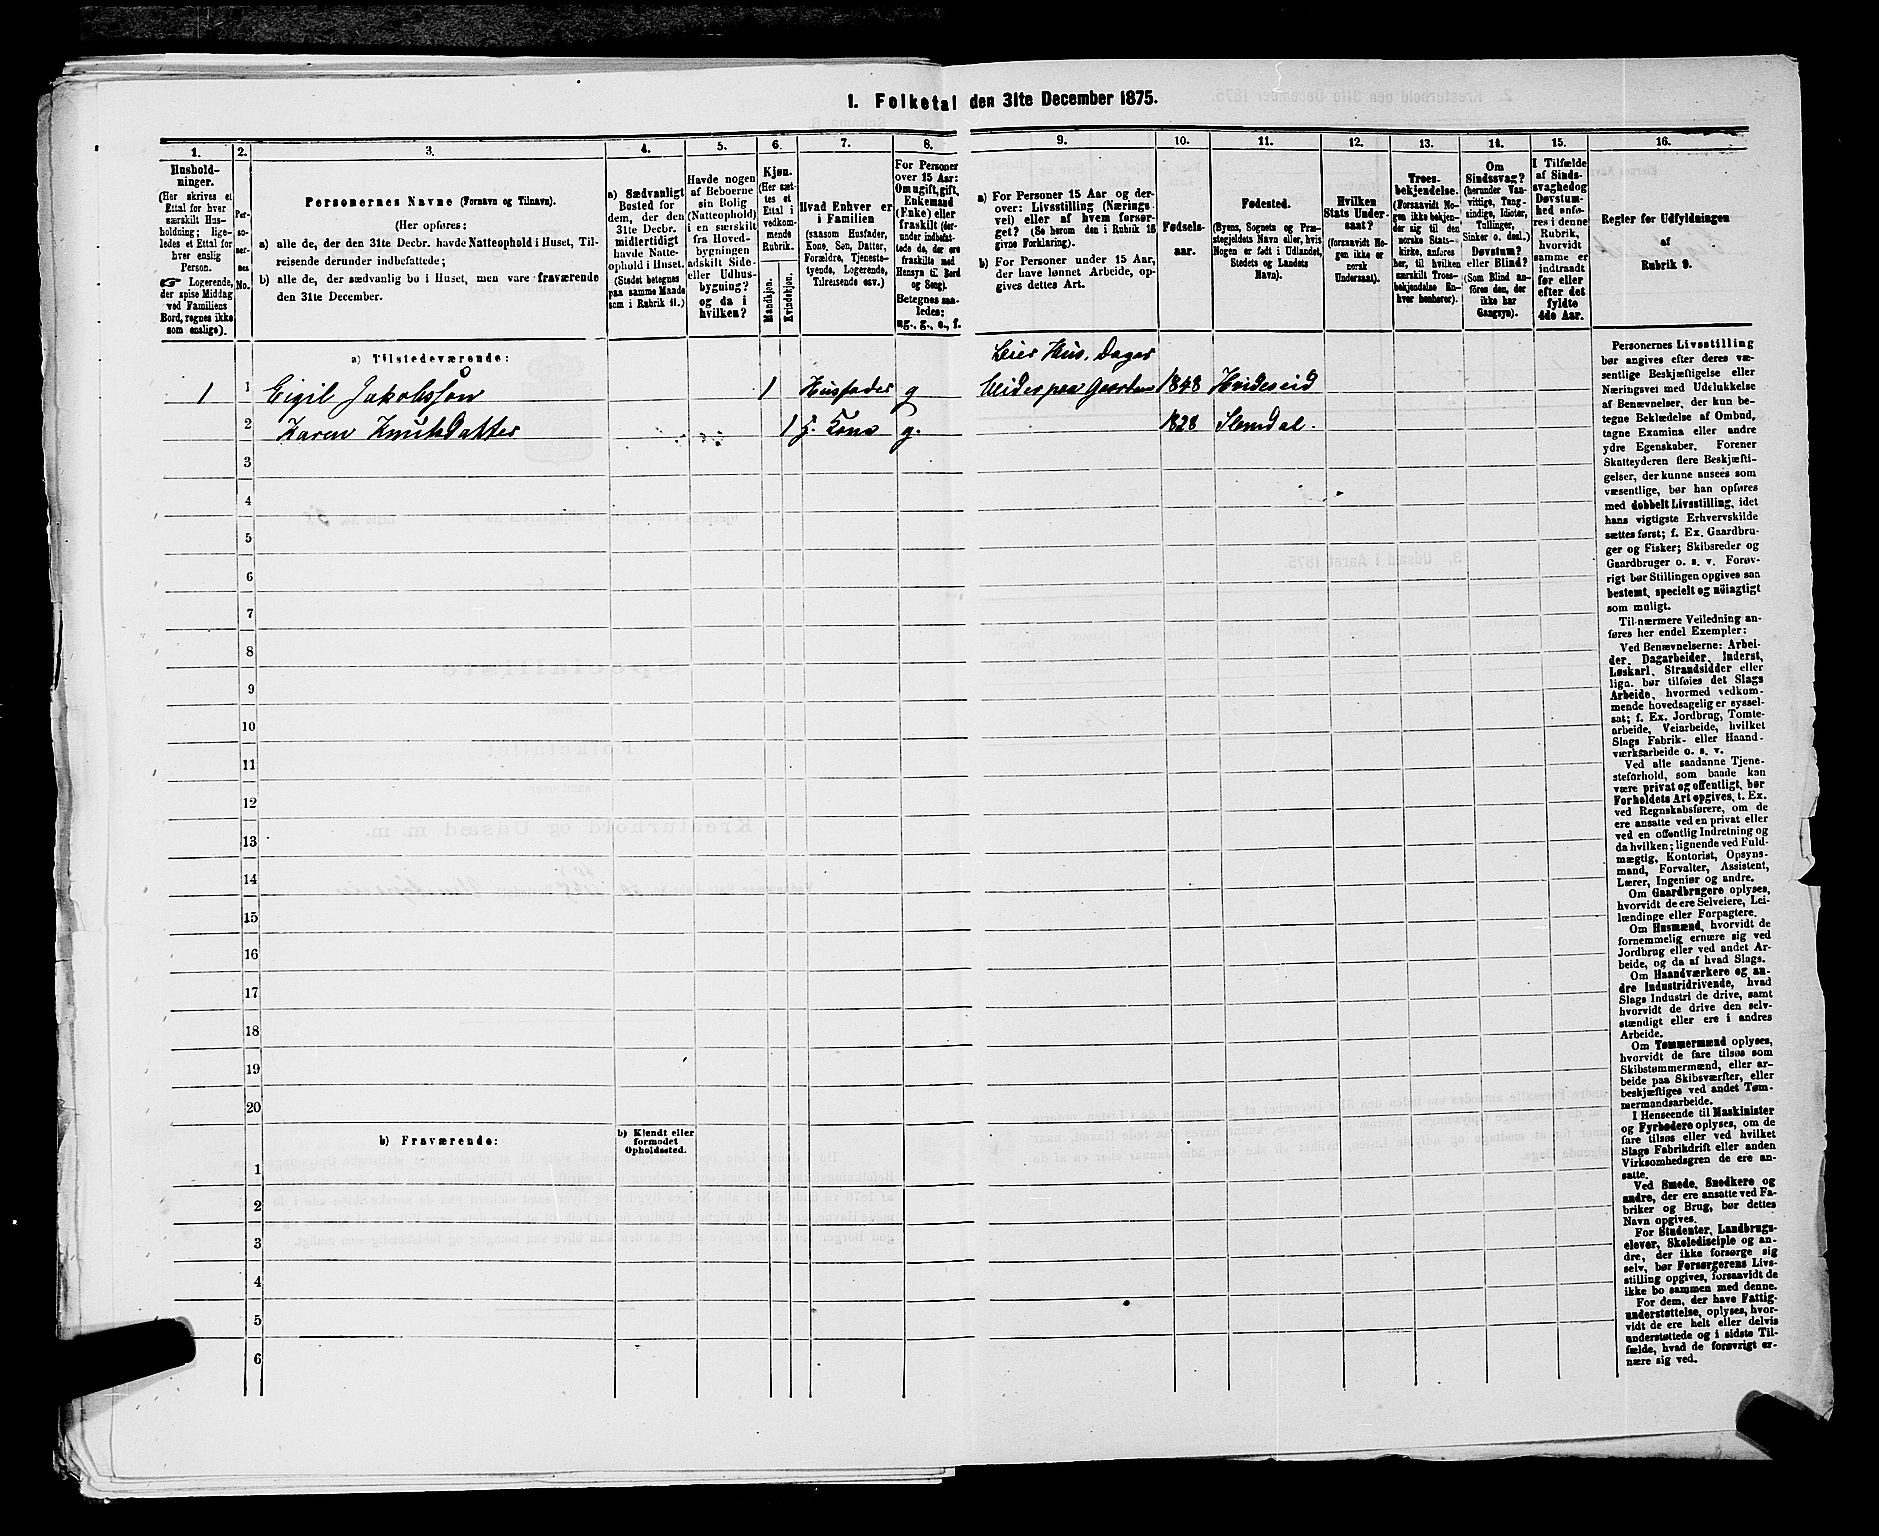 1. Folketal den 31te December 1875.
1.
Hushold-
ninger.
(Her skrives et
Ettal for hver
særskilt Hus-
holdning; lige-
ledes et Ettal for
hver enslig
Person.
Logerende,
der spise Middag
ved Familiens
Bord, regnes ikke
som enslige).
2.
Per-
so-
ner-
nes
No.
3.
Personernes Navne (Fornavn og Tilnavn).
(Her opføres:
a) alle de, der den 31te Decbr. havde Natteophold i Huset, Til-
reisende derunder indbefattede;
b) alle de, der sædvanlig bo i Huset, men vare fraværende
den 31te December.
4.
a) Sædvanligt
Bosted for
dem, der den
31te Decbr.
midlertidigt
havde Natte-
ophold i Huset.
(Stedet betegnes
paa samme Maade
som i Rubrik 11.)
5.
Havde nogen
af Beboerne
sin Bolig
(Natteophold)
i en særskilt
fra Hoved-
bygningen
adskilt Side-
eller Udhus-
bygning?
og da i
hvilken?
6.
Kjøn.
(Her sæt-
tes et
Ettal i
vedkom-
mende
Rubrik.
Mandkjøn.
Kvindekjøn.
7.
Hvad Enhver er
i Familien
(saasom Husfader,
Kone, Søn, Datter,
Forældre, Tjeneste-
tyende, Logerende,
Tilreisende osv.)
8.
For Personer
over 15 Aar:
Om ugift, gift,
Enkemand
(Enke) eller
fraskilt (der-
under indbefat-
tede de, der ere
fraskilte med
Hensyn til Bord
og Seng).
Betegnes saa-
ledes:
ug., g., e., f.
9.
a) For Personer 15 Aar og der-
over: Livsstilling (Nærings-
vei) eller af hvem forsør-
get? (Se herom den i Rubrik 16
givne Forklaring).
b) For Personer under 15 Aar,
der have lønnet Arbeide, op-
gives dettes Art.
10.
Fødsels-
aar.
11.
Fødested.
(Byens, Sognets og Præ-
stegjeldets Navn eller, hvis
Nogen er født i Udlandet,
Stedets og Landets
Navn).
12.
Hvilken
Stats Under-
saat?
(forsaavidt No-
gen ikke er
norsk
Undersaat).
13.
Troes-
bekjendelse.
(Forsaavidt No-
gen ikke bekjen-
der sig til den
norske Stats-
kirke, anføres
her, til hvilken
særskilt Troes-
bekjendelse En-
hver henhører).
14.
Om
Sindssvag?
(herunder Van-
vittige, Tung-
sindige, Idioter,
Tullinger,
Sinker o. desl.)
Døvstum?
eller Blind?
(Som Blind an-
føres den, der
ikke har
Gangsyn).
15.
I Tilfælde
af Sinds-
svaghed og
Døvstum-
hed anfø-
res i denne
Rubrik,
hvorvidt
samme er
indtraadt
før eller
efter det
fyldte
4de Aar.
16.
Regler for Udfyldningen
af
Rubrik 9.
a) Tilstedeværende:
Leier Hus. Dagar
1 1 Eigil Jakobssøn 1 Husfader g beider paa Gaarden 1848 Hvideseid
2 Karen Knutsdatter 1 h. Kone g. 1828 Slemdal.
3
4
5
6
7
8
9
10
11
12
13
14
15
16
17
18
19
20
b) Fraværende:
b) Kjendt eller
formodet
Opholdssted.
1
2
3
4
5
6
Personernes Livsstilling
bør angives efter deres væ-
sentlige Beskjæftigelse eller
Næringsvei med Udelukkelse
af Benævnelser, der kun be-
tegne Beklædelse af Ombud,
tagne Examina eller andre
ydre Egenskaber. Forener
Skatteyderen flere Beskjæfti-
gelser, der kunne ansees som
væsentlige, bør han opføres
med dobbelt Livsstilling, idet
hans vigtigste Erhvervskilde
sættes først; f. Ex. Gaardbru-
ger og Fisker; Skibsreder og
Gaardbruger o. s. v. Forøv-
rigt bør Stillingen opgives saa
bestemt, specielt og nöiagtigt
som muligt.
Til nærmere Veiledning an-
føres her endel Exempler:
Ved Benævnelserne: Arbei-
der, Dagarbeider, Inderst,
Løskarl, Strandsidder eller
lign. bør tilføies det Slags
Arbeide, hvormed vedkom-
mende hovedsagelig er syssel-
sat; f. Ex. Jordbrug, Tomte-
arbeide, Veiarbeide, hvilket
Slags Fabrik- eller Haand-
værksarbeide o. s. v.
Ved alle saadanne Tjene-
steforhold, som baade kan
være privat og offentligt, bør
Forholdets Art opgives, t. Ex.
ved Regnskabsførere, om de
ere ansatte ved en privat eller
ved en offentlig Indretning og
da hvilken; lignende ved Fuld-
mægtig, Kontorist, Opsyns-
mand, Forvalter, Assistent,
Lærer, Ingeniør og andre.
Om Gaardbrugere oplyses,
hvorvidt de ere Selveiere, Lei-
lændinge eller Forpagtere.
Om Husmænd, hvorvidt de
fornemmelig ernære sig ved
Jordbrug eller ved andet Ar-
beide, og da af hvad Slags.
Om Haandværkere og an-
dre Industridrivende, hvad
Slags Industri de drive, samt
hvorvidt de drive den selv-
stændigt eller ere i andres
Arbeide.
Om Tømmermænd oplyses,
hvorvidt de fare tilsøs som
Skibstømmermænd, eller ar-
beide paa Skibsværfter, eller
beskjæftiges ved andet Tøm-
mermandsarbeide.
I Henseende til Maskinister
og Fyrbødere oplyses, om de
fare tilsøs eller ved hvilket
Slags Fabrikdrift eller anden
Virksomhedsgren de ere an-
satte.
Ved Smede, Snedkere og
andre, der ere ansatte ved Fa-
briker og Brug, bør dettes
Navn opgives.
For Studenter, Landbrugs-
elever, Skoledisciple og an-
dre, der ikke forsørge sig
selv, bør Forsørgerens Livs-
stilling opgives, forsaavidt de
ikke bo sammen med denne.
For dem, der have Fattig-
understøttelse, oplyses, hvor-
vidt de ere helt eller delvis
understøttede og i sidste Til-
fælde, hvad de forøvrigt er-
nære sig ved.